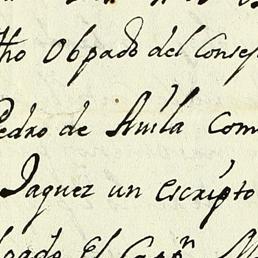 ho Obpado del Consej
Pedro de Auila Com
Jaquez un escripto
El Cappn